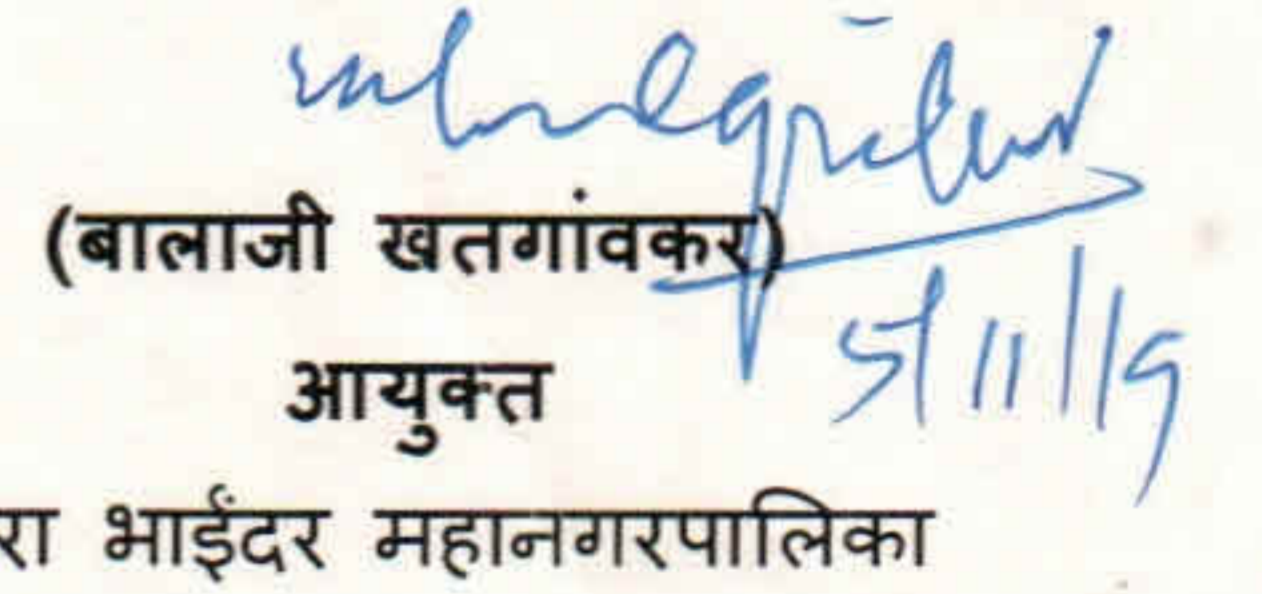 (बालाजी खतगांवकर)
5/11/19
आयुक्त
रा भाईंदर महानगरपालिका